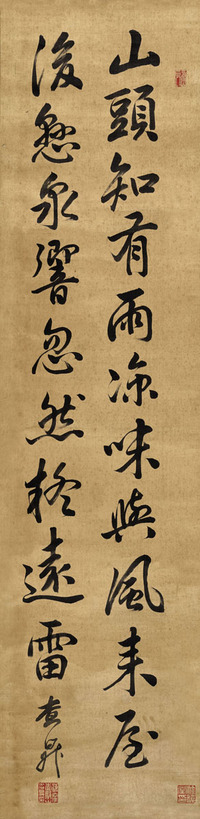 山頭知有雨凉味與風来屋
後懸泉響忽然遠雷查昇